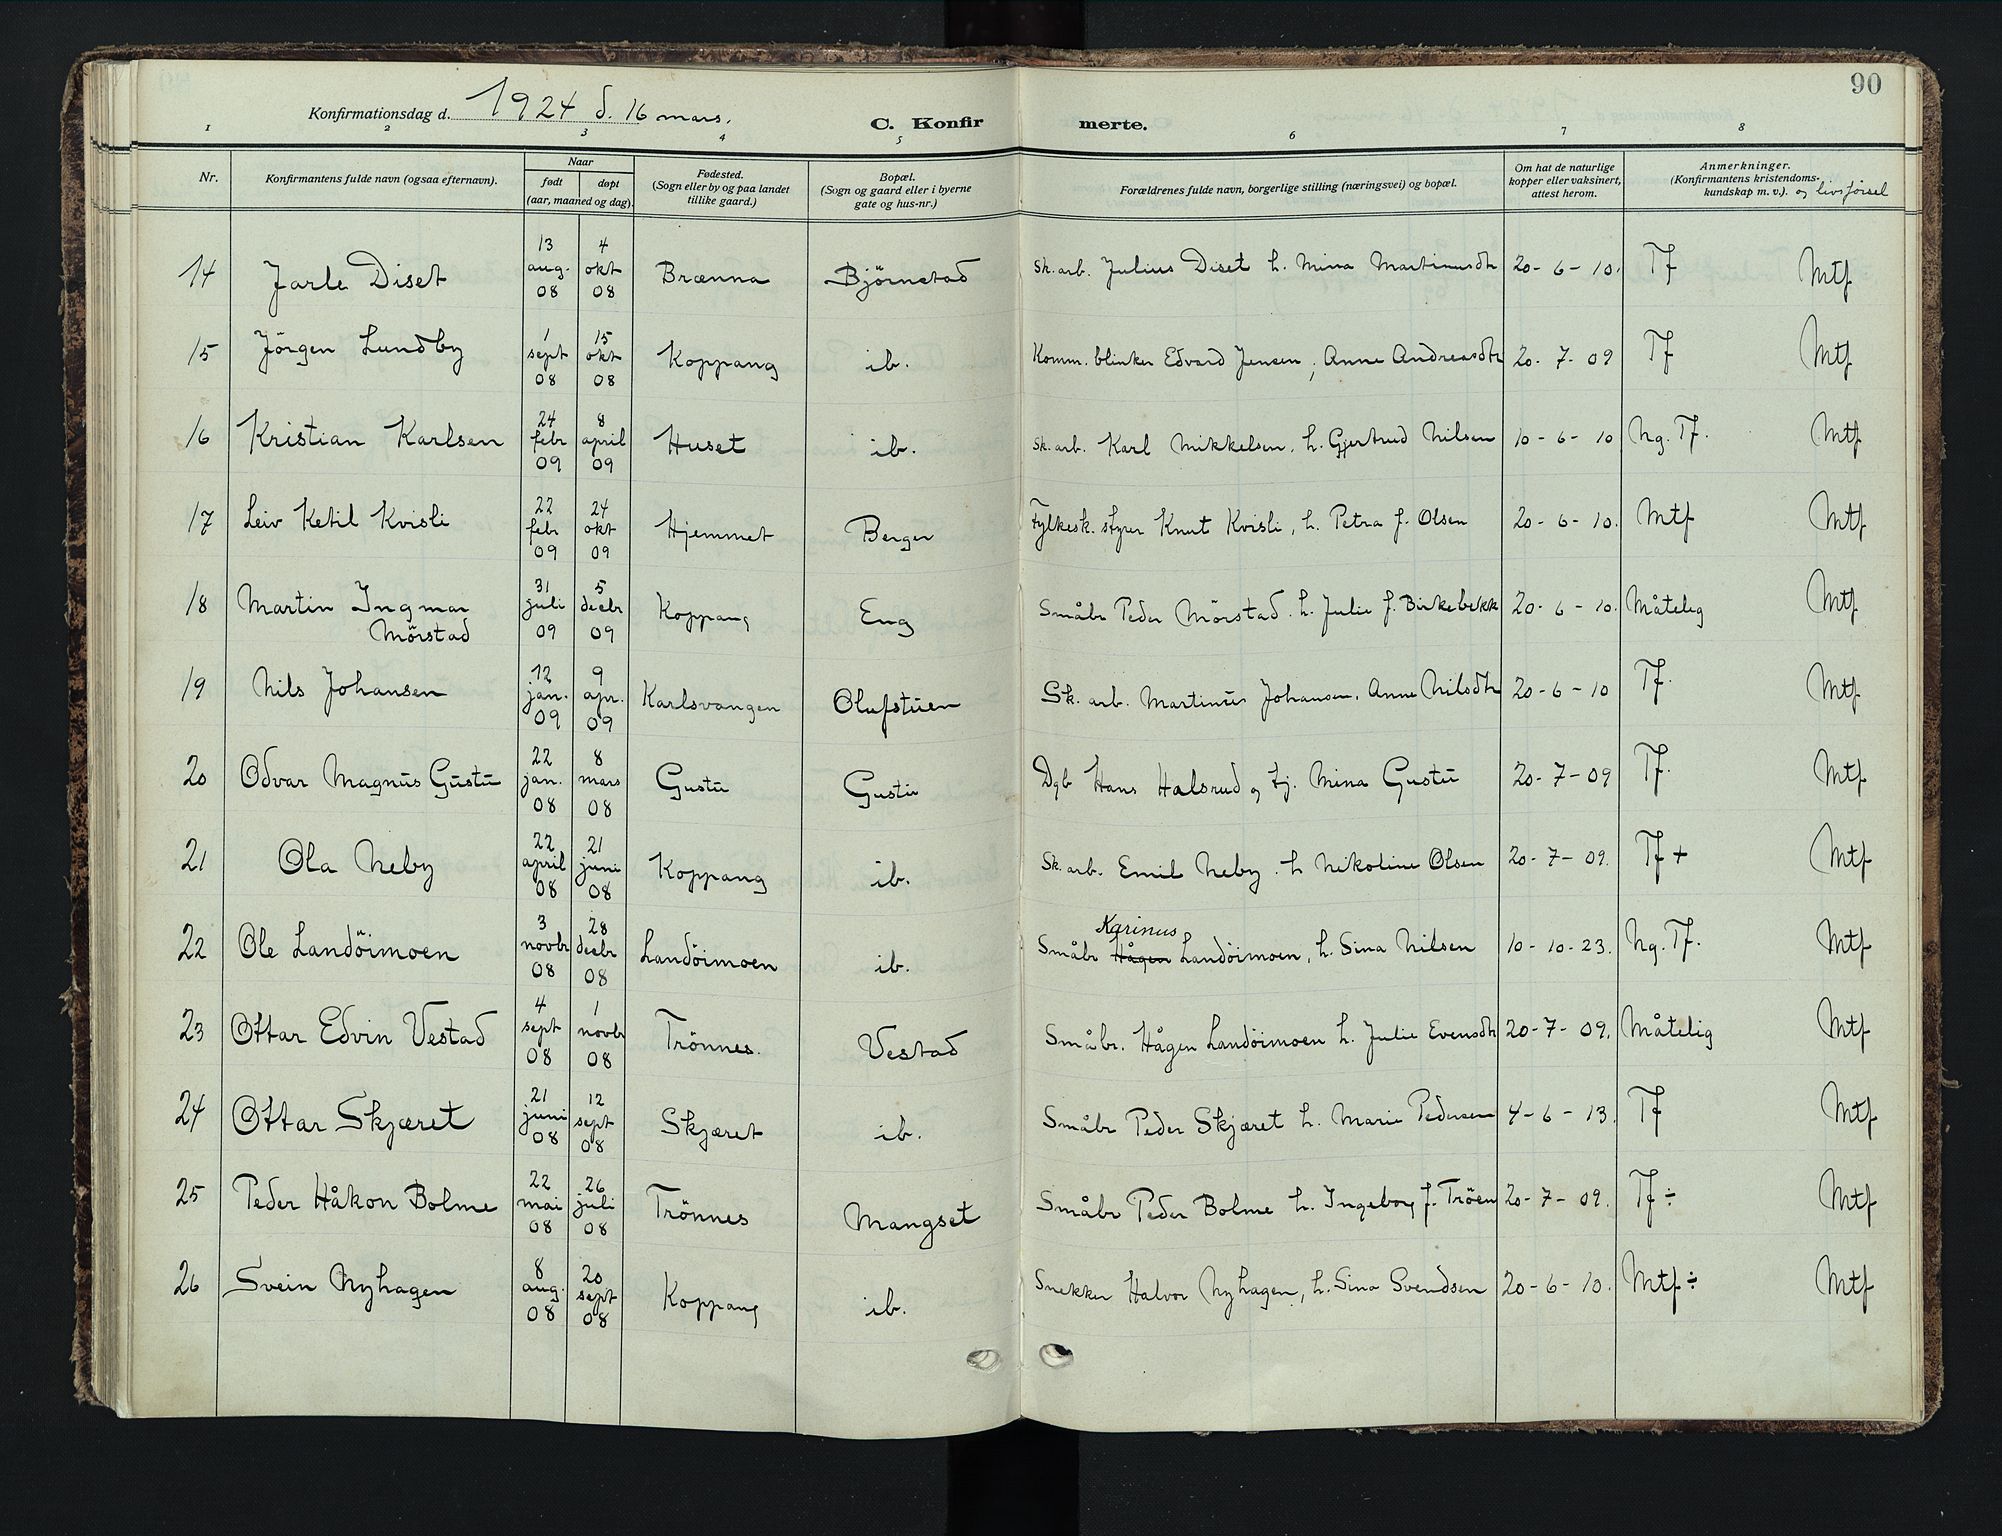 90
Konfirmationsdag d. 1924 d. 16 mars.
C. Konfirmerte.
1 2 3 4 5 6 7 8
Nr. Konfirmantens fulde navn (ogsaa efternavn). Naar født døpt (aar, maaned og dag). Fødested. (Sogn eller by og paa landet tillike gaard.) Bopæl. (Sogn og gaard eller i byerne gate og hus-nr.) Forældrenes fulde navn, borgerlige stilling (næringsvei) og bopæl. Om hat de naturlige kopper eller vaksinert, attest herom. Anmerkninger. (Konfirmantens kristendomskundskap m. v.). og livsførsel
14 Jarle Diset 13 aug. 08 4 okt 08 Brænna Bjørnstad Sk. arb. Julius Diset h. Mina Martinusdtr 20-6-10. Tf Mtf
15 Jörgen Lundby 1 sept 08 15 okt 08 Koppang ib. Komm. blinker Edvard Jensen, Anne Andreasdtr 20-7-09 Tf Mtf
16 Kristian Karlsen 24 febr 09 8 april 09 Huset ib. Sk. arb. Karl Mikkelsen, h. Gjertrud Nilsen 10-6-10 Ng. Tf. Mtf
17 Leiv Ketil Kvisli 22 febr 09 24 okt 09 Hjemmet Berger Fylkesk. styrer Knut Kvisli, h. Petra f. Olsen 20-6-10. Mtf Mtf
18 Martin Ingmar Mörstad 31 juli 09 5 decbr 09 Koppang Eng Småbr Peder Mörstad. h. Julie f. Birkebekk 20-6-10. Måtelig Mtf
19 Nils Johansen 12 jan. 09 9 apr. 09 Karlsvangen Olufstuen Sk. arb. Martinus Johansen, Anne Nilsdtr 20-6-10 Tf. Mtf
20 Odvar Magnus Gustu 22 jan. 08 8 mars 08 Gustu Gustu Dgb Hans Halsrud og tj. Mina Gustu 20-7-09 Tf. Mtf
21 Ola Neby 22 april 08 21 juni 08 Koppang ib. Sk. arb. Emil Neby. h Nikoline Olsen 20-7-09. Tf + Mtf
22 Ole Landöimoen 3 novbr 08 28 decbr 08 Landöimoen ib. Småbr Hågen Karinus Landöimoen, h. Sina Nilsen 10-10-23. Ng. Tf. Mtf
23 Ottar Edvin Vestad 4 sept 08 1 novbr 08 Trönnes. Vestad Småbr. Hågen Landöimoen h. Julie Evensdtr 20-7-09. Måtelig Mtf
24 Ottar Skjæret 21 juni 08 12 sept 08 Skjæret ib. Småbr Peder Skjæret h. Marie Pedersen 4-6-13. Tf Mtf
25 Peder Håkon Bolme 22 mai 08 26 juli 08 Trönnes Mangset Småbr Peder Bolme h. Ingeborg f. Tröen 20-7-09. Tf ÷ Mtf
26 Svein Nyhagen 8 aug. 08 20 sept 08 Koppang ib. Snekker Halvor Nyhagen, h. Sina Svendsen 20-6-10. Mtf ÷ Mtf